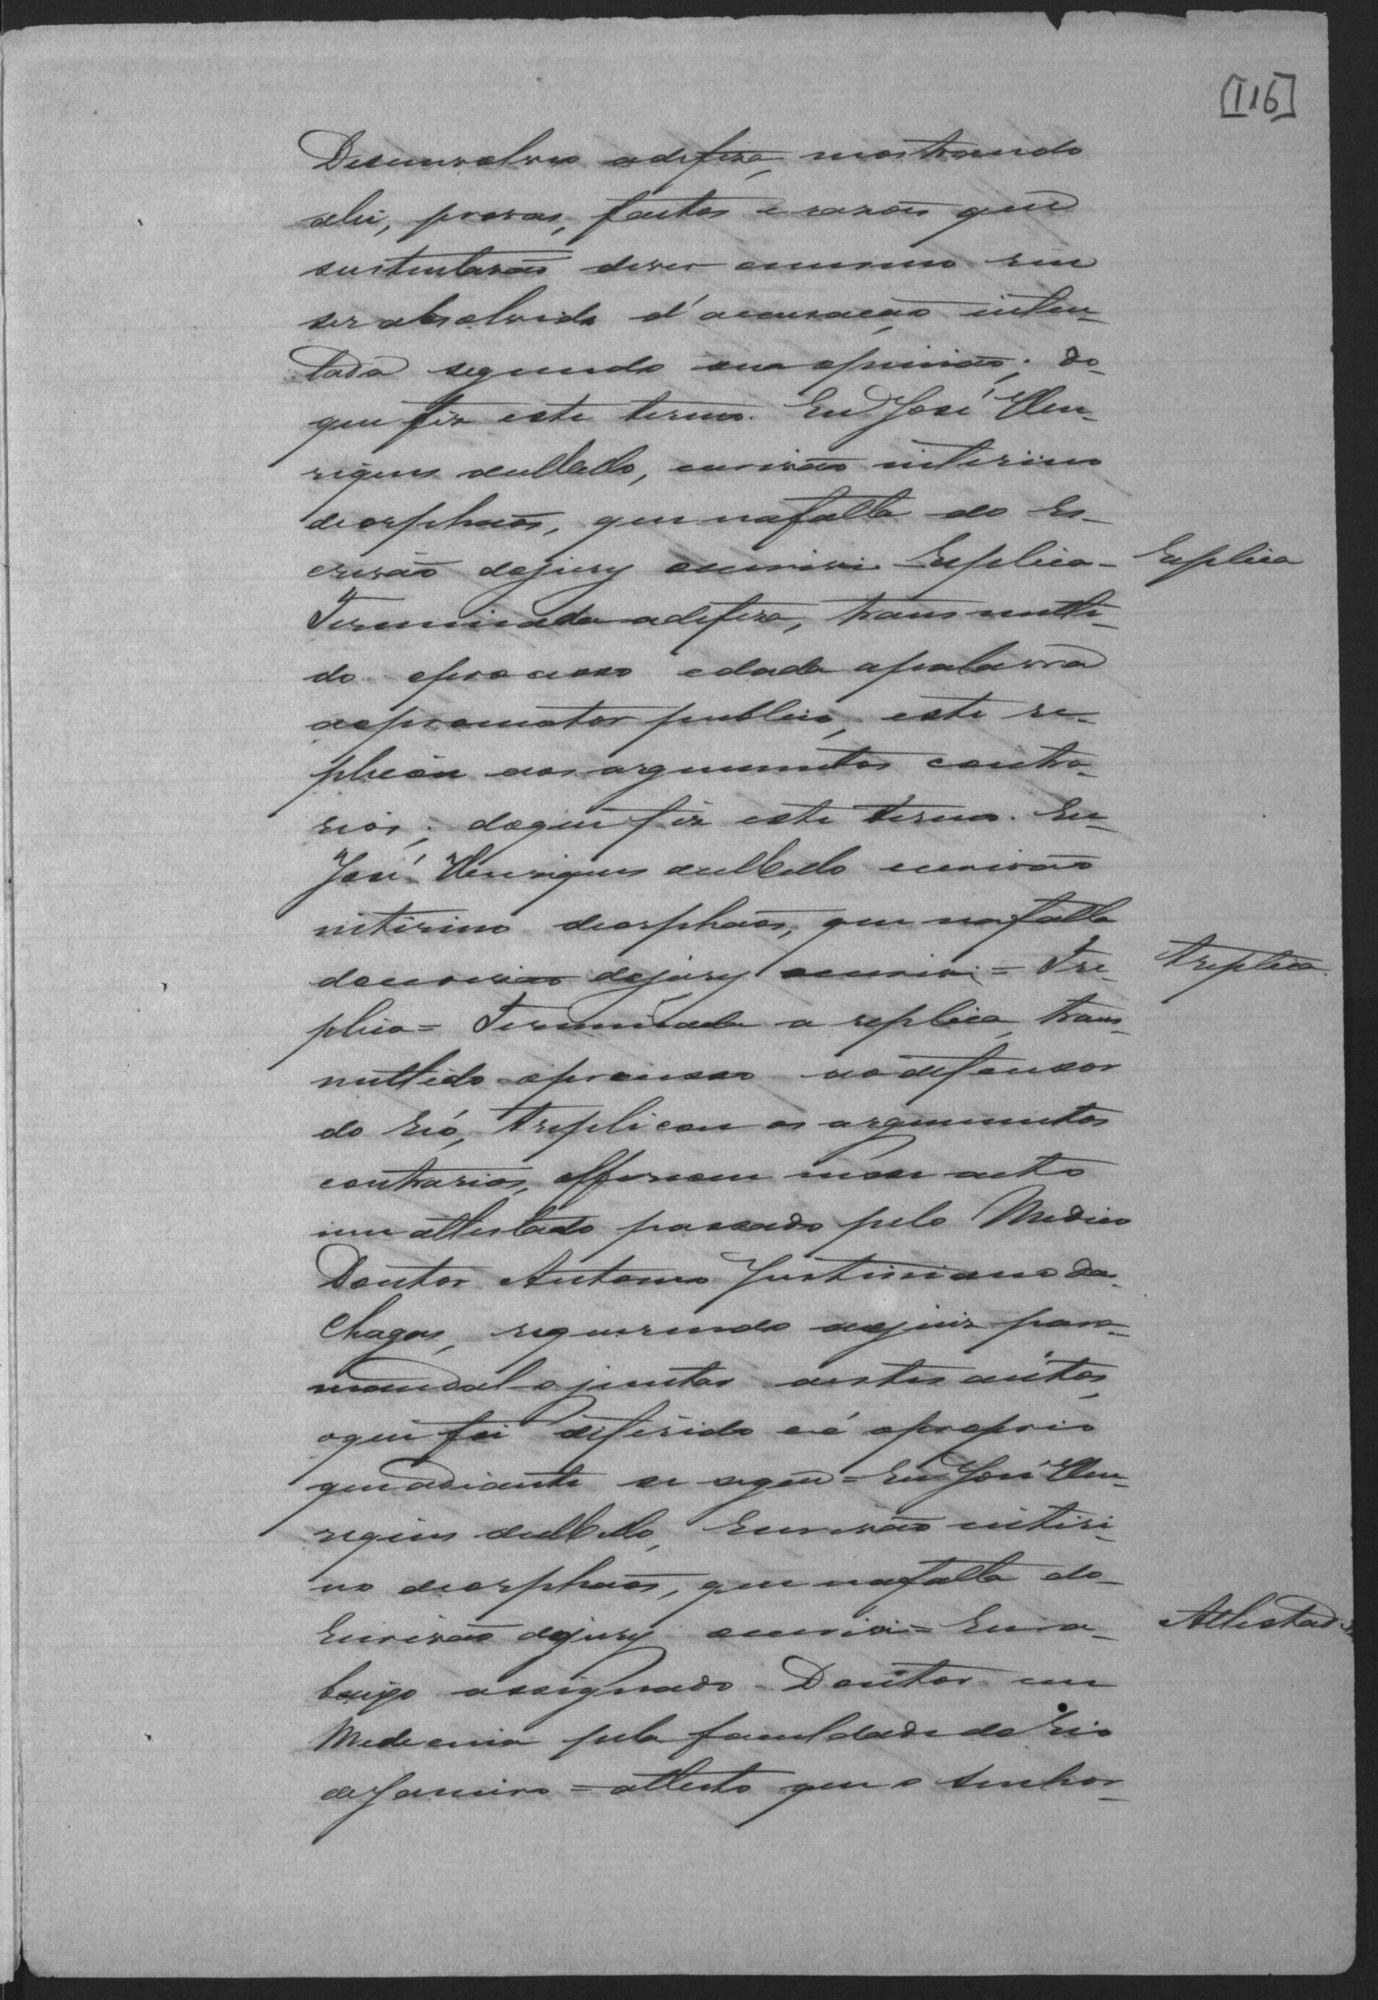 [116]
Desenvolveo adefeza, mostrando
alei, provas, factos e razões que
sustentavão dever o mesmo reu
ser absolvido d'accusação inten-
tada segundo sua opinião; do
que fiz este termo. Eu José Hen-
riques de Mello, escrivão interino
deorphãos, que nafalta do Es-
crivão dejury escrivi - Replica -
Replica
Terminada adefeza, transmitti-
do oprocesso e dada apalavra
aopromotor publico, este re-
plicou aos argumentos contra-
rios; doque fiz este termo. Eu
José Henriques de Mello escrivão
interino deorphãos, que nafalta
doescrivão dejury escrivi = Tre-
Treplica
plica = Terminada a replica, trans-
mittido oprocesso aodefensor
do Reó, treplicou os argumentos
contrarios, offereceu nesse acto
um attestado passado pelo Medico
Doutor Antonio Justiniano das
Chagas, requerendo aojuiz para
mandal-o juntar aestes autos,
oque foi deferido e é oproprio
que adiante se segue = Eu José Hen-
riques de Mello, Escrivão interi-
no deorphãos, que nafalta do
Escrivão dejury escrivi = Eu a-
Attestado
baixo assignado Doutor em
Medecina pela faculdade do Rio
deJaneiro = attesto que o senhor